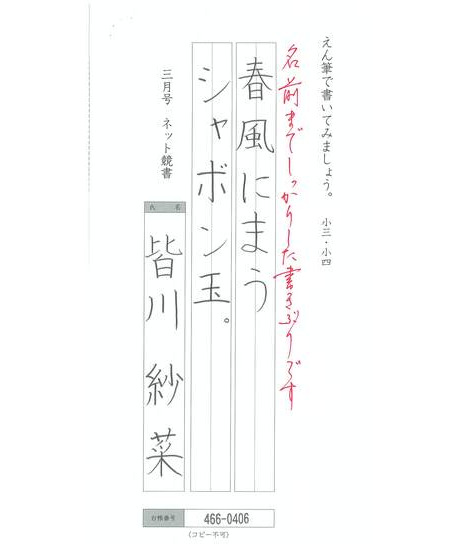 えん筆で書いてみましょう。 小三・小四
名前までしっかりした書きぶりです
春風にまう
シャボン玉。
三月号 ネット競書
氏名
皆川紗菜
台帳番号 466-0406
(コピー不可)